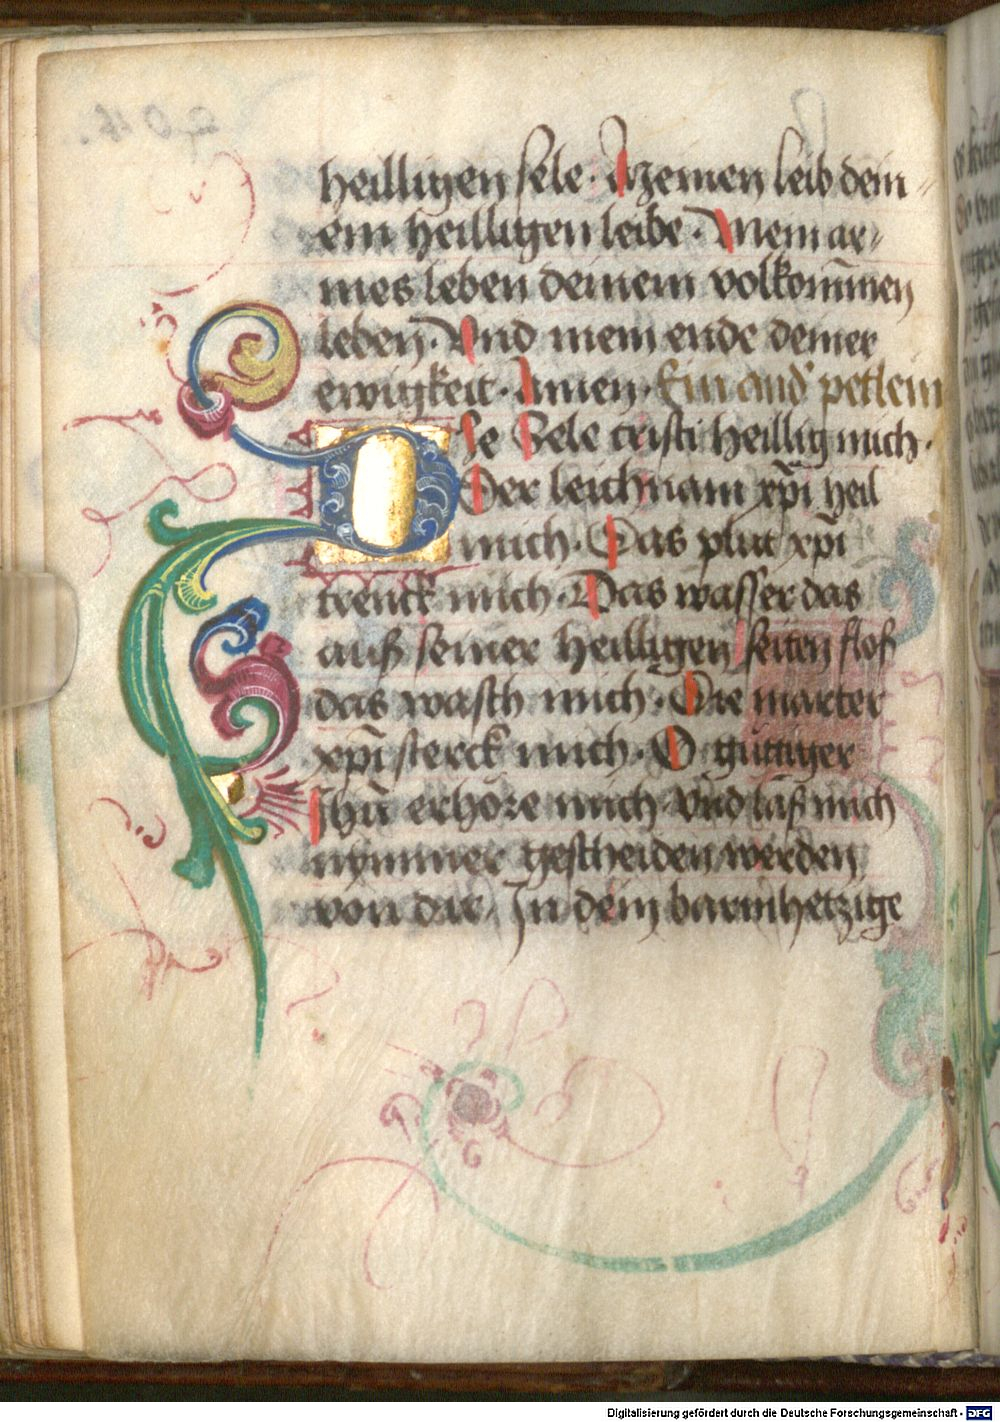 heilligen sele. Meinen leib dein
em heilligen leibe. Mein ar-
mes leben deinem volkom̄men
leben. Vnd mein ende deiner
ewigkeit. Amen. Ein and' petlein
Die Sele cristi heillig mich.
Der leichnam xp̄i heil
mich. Das plut xp̄i
trenck mich. Das wasser das
auß seiner heilligen seiten floß
das wasch mich. Die marter
xp̄i sterck mich. O guttiger
Jhū erhöre mich vnd laß mich
nymmer gescheiden werden
von dir. In dem barmhetzige
Digitalisierung gefördert durch die Deutsche Forschungsgemeinschaft - DFG